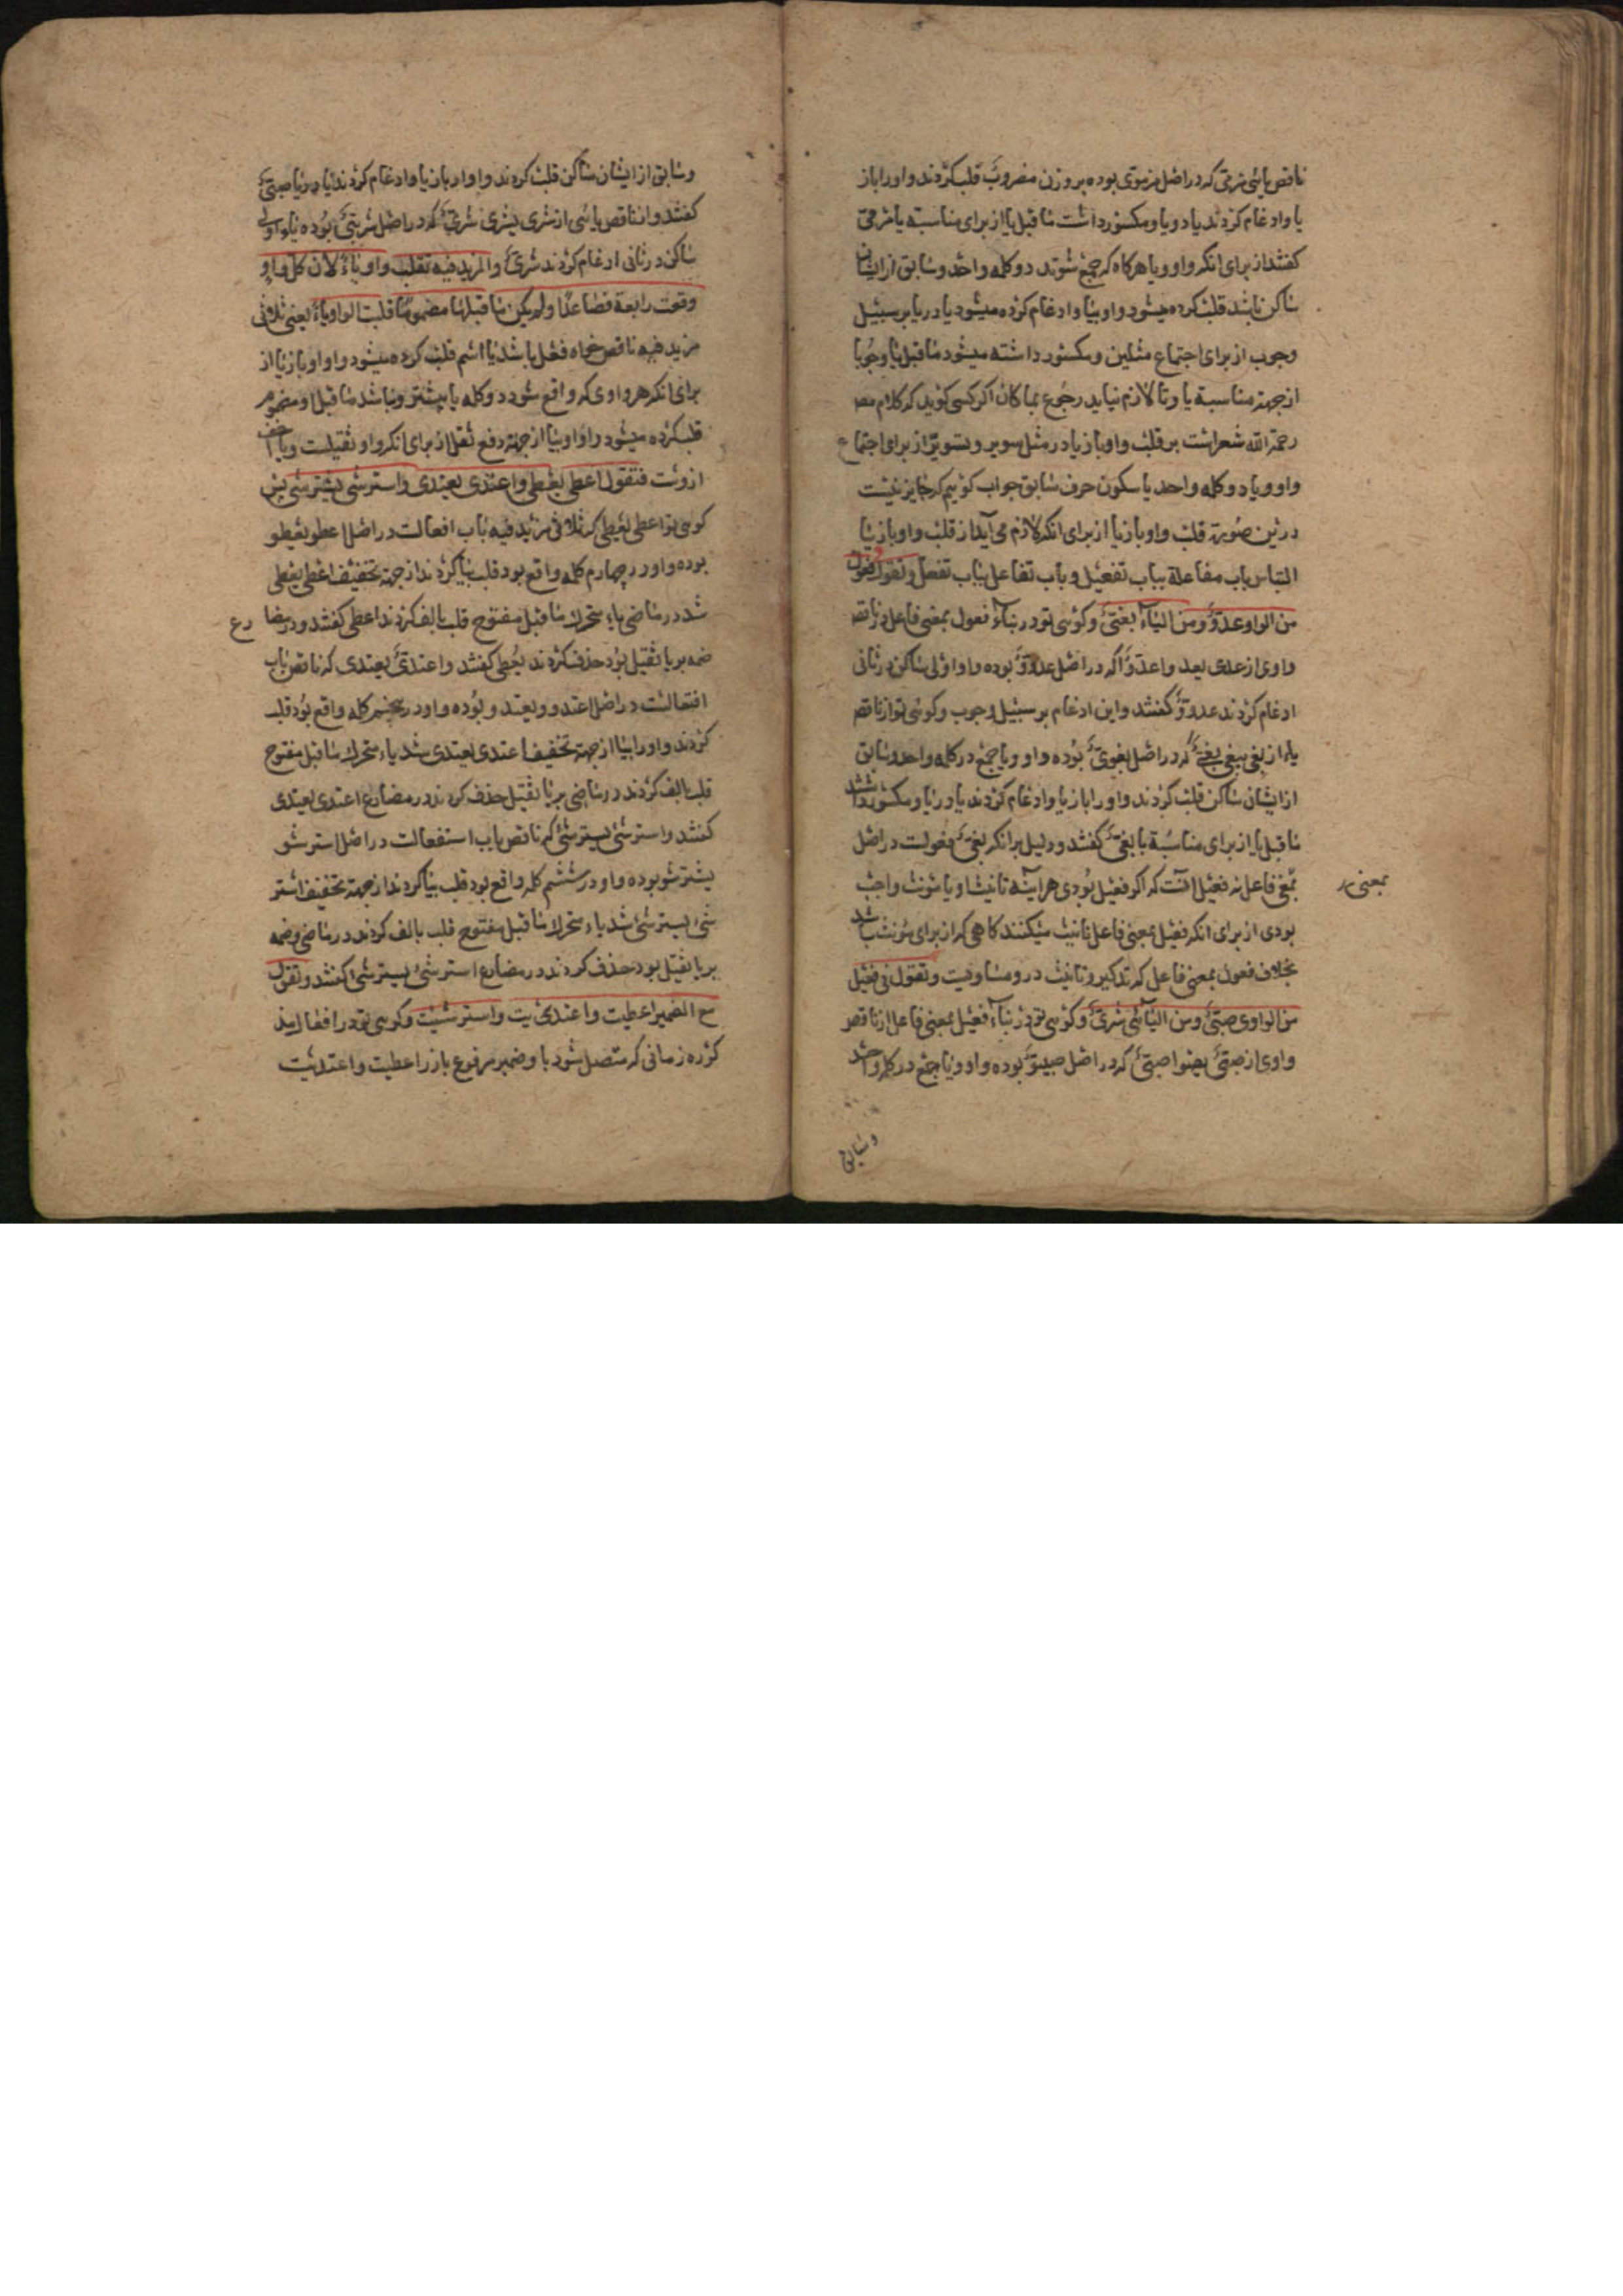 ناقص یائی مرمی که در اصل مرموی بوده بر وزن مضروب قلب کردند واو را باز
یا و ادغام کردند یا در یا و مکسور داشت ما قبل یا از برای مناسبة یا مرمی
کفتند از برای انکه واو و یا هرکاه که جمع شوند در کلمه واحد و سابق از ایشان
ساکن باشد قلب کرده میشود واو بیا و ادغام کرده میشود یا در یا بر سبیل
وجوب از برای اجتماع مثلین و مکسور داشته میشود ما قبل یا وجوبا
از جهة مناسبة یا و تا لازم نیاید رجوع بما کان اکر کسی کوید که کلام مص
رحمة الله مشعر است بر قلب واو باز یا در مثل سویر و تسویر از برای اجتماع
واو و یا در کلمه واحد با سکون حرف سابق جواب کوییم که جایز نیست
درین صورة قلب واو باز یا از برای انکه لازم می آید از قلب واو باز یا
التباس باب مفاعلة بباب تفعیل و باب تفاعل بباب تفعل و تقول فی فعول
من الواو عدوّ و من الیاء بغیّ و کوئی تو در بناء فعول بمعنی فاعل از ناقص
واوی از عدی یعد واعدوّا که در اصل عدووٌ بوده واو اولی ساکن در ثانی
ادغام کردند عدوّ کفتند و این ادغام بر سبیل وجوب و کوئی تو از ناقص
یاء از بغی یبغی بغیّ که در اصل بغویٌ بوده واو و یا جمع در کلمه واحد و سابق
از ایشان ساکن قلب کردند واو را باز یا و ادغام کردند یا در یا و مکسور داشتند
ما قبل یا از برای مناسبة یا بغیّ کفتند و دلیل بر انکه بغیّ فعولست در اصل
بمعنی فاعل نه فعیل انست که اکر فعیل بودی هر آینه تانیث او یا مؤنث واجب
بمعنی
بودی از برای انکه فعیل بمعنی فاعل تانیث میکنند کاهی که از برای مؤنث باشد
بخلاف فعول بمعنی فاعل که تذکیر و تانیث درو مساویست و تقول فی فعیل
من الواوی صبیّ و من الیائی شریّ و کوئی تو در بناء فعیل بمعنی فاعل از ناقص
واوی از صبیّ یصبوا صبیّ که در اصل صبیوٌ بوده واو و یا جمع در کلمه واحد
و سابق
و سابق از ایشان ساکن قلب کردند واو را باز یا و ادغام کردند یا در یا صبیّ
کفتند و از ناقص یائی از شری یشری شریّ که در اصل شرییٌ بوده یاء اولی
ساکن در ثانی ادغام کردند شریّ و المزید فیه تقلب واوه یاءً لان کل واو
وقعت رابعة فصاعدًا ولم یکن ما قبلها مضمومًا قلبت الواو یاءً یعنی ثلاثی
مزید فیه ناقص خواه فعل باشد یا اسم قلب کرده میشود واو او باز یا از
برای انکه هر واوی که واقع شود در کلمه یا بیشتر و نباشد ما قبل او مضموم
قلب کرده میشود واو او بیا از جهة دفع ثقل از برای انکه واو ثقیلست و یا اخف
ازوست فتقول اعطی یعطی و اعتدی یعتدی و استرشی یسترشی پس
کوئی تو اعطی یعطی که ثلاثی مزید فیه باب افعالست در اصل اعطو یعطو
بوده واو در چهارم کلمه واقع بود قلب بیا کردند از جهة تخفیف اعطی یعطی
شد در ماضی یاء متحرک ما قبل مفتوح قلب بالف کردند اعطی کفتند و در مضا
رع
ضمه بر یا ثقیل بود حذف کردند یعطی کفتند و اعتدی یعتدی که ناقص باب
افتعالست در اصل اعتدو و یعتدو بوده واو در پنجم کلمه واقع بود قلب
کردند واو را بیا از جهة تخفیف اعتدی یعتدی شد یاء متحرک ما قبل مفتوح
قلب بالف کردند در ماضی بر یا ثقیل حذف کردند در مضارع اعتدی یعتدی
کفتند و استرشی یسترشی که ناقص باب استفعالست در اصل استرشو
یسترشو بوده واو در ششم کلمه واقع بود قلب بیا کردند از جهة تخفیف استر
شی یسترشی شد یاء متحرک ما قبل مفتوح قلب بالف کردند در ماضی و ضمه
بر یا ثقیل بود حذف کردند در مضارع استرشی یسترشی کفتند و تقول
مع الضمیر اعطیت و اعتدیت و استرشیت و کوئی تو در افعال مذ
کوره زمانی که متصل شود باو ضمیر مرفوع بارز اعطیت و اعتدیت